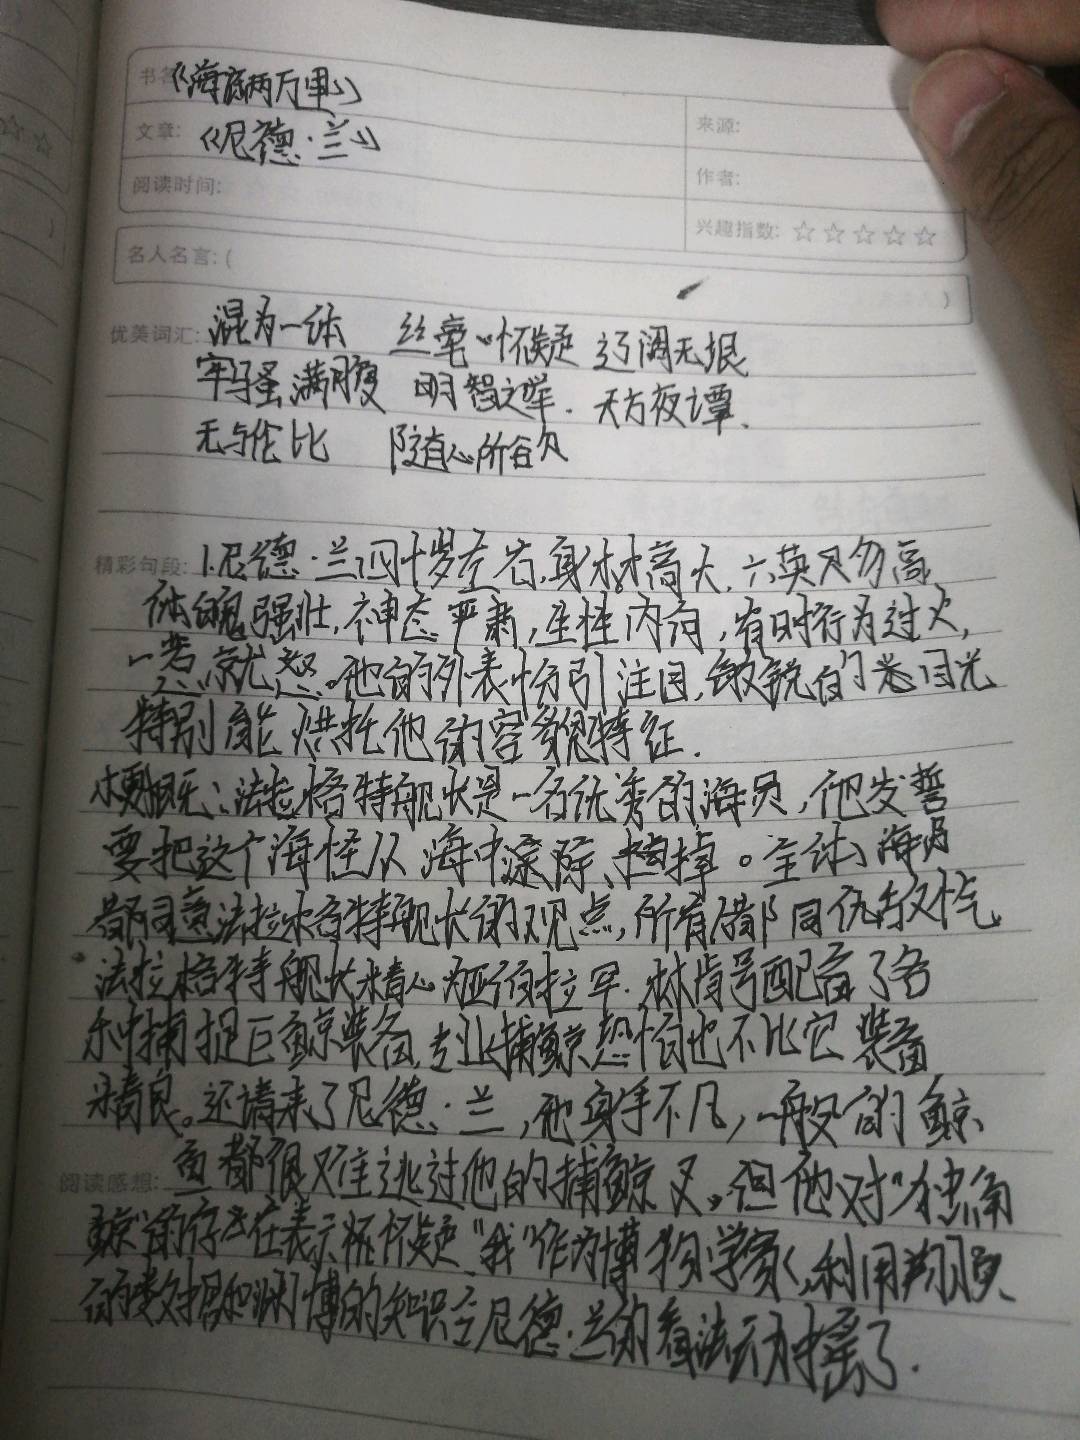 书名 《海底两万里》
来源:
文章: 《尼德·兰》
作者:
阅读时间:
兴趣指数: ☆☆☆☆☆
名人名言: ( )
优美词汇: 混为一体 丝毫怀疑 辽阔无垠
牢骚满腹 明智之举. 天方夜谭.
无与伦比 随心所欲
精彩句段: 1.尼德·兰四十岁左右,身材高大,六英尺多高
体魄强壮,神态严肃,生性内向,有时行为过火,
一惹就怒。他的外表引注目,敏锐的目光
特别能烘托他的容貌特征.
梗概:法拉格特舰长是一名优秀的海员,他发誓
要把这个海怪从海中除掉。全体海员
都同意法拉格特舰长的观点,所有都同仇敌忾
法拉格特舰长精心,林肯号配备了各
种捕捉巨鲸装备,专业捕鲸恐怕也不比它装备
精良。还请来了尼德·兰,他身手不凡,一般的鲸
阅读感想: 鱼都很难逃过他的捕鲸叉。但他对"独角
鲸"的存在表示怀疑"我"作为博物学家,利用翔实
的数据和渊博的知识令尼德·兰的看法动摇了.